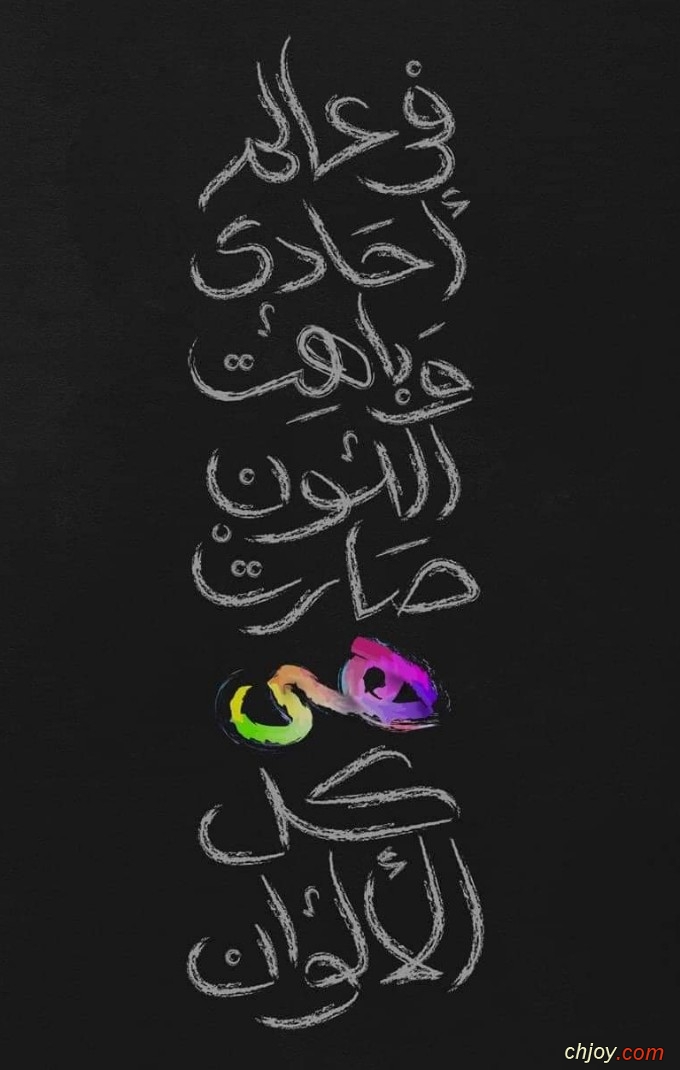 في عالم
أُحَادى
وَباهِت
اللون
صَارتْ
هى
كل
الألوان
chjoy.com